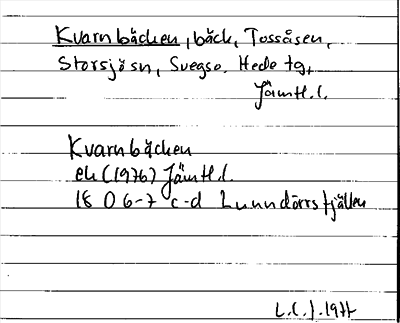 Kvarnbäcken, bäck, Tossåsen,
Storsjö sn, Svegs o. Hede tg,
Jämtl.l.
Kvarnbäcken
ek (1976) Jämtl.l.
18 D 6-7 c-d Lunndörrsfjällen
L.C.J. 1977